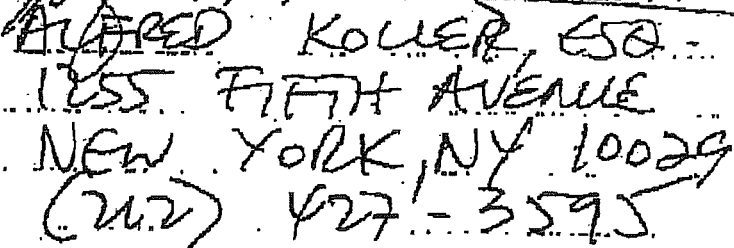 ALFRED KOLLER, ESQ.
1255 FIFTH AVENUE
NEW YORK, NY 10029
(212) 427-3595